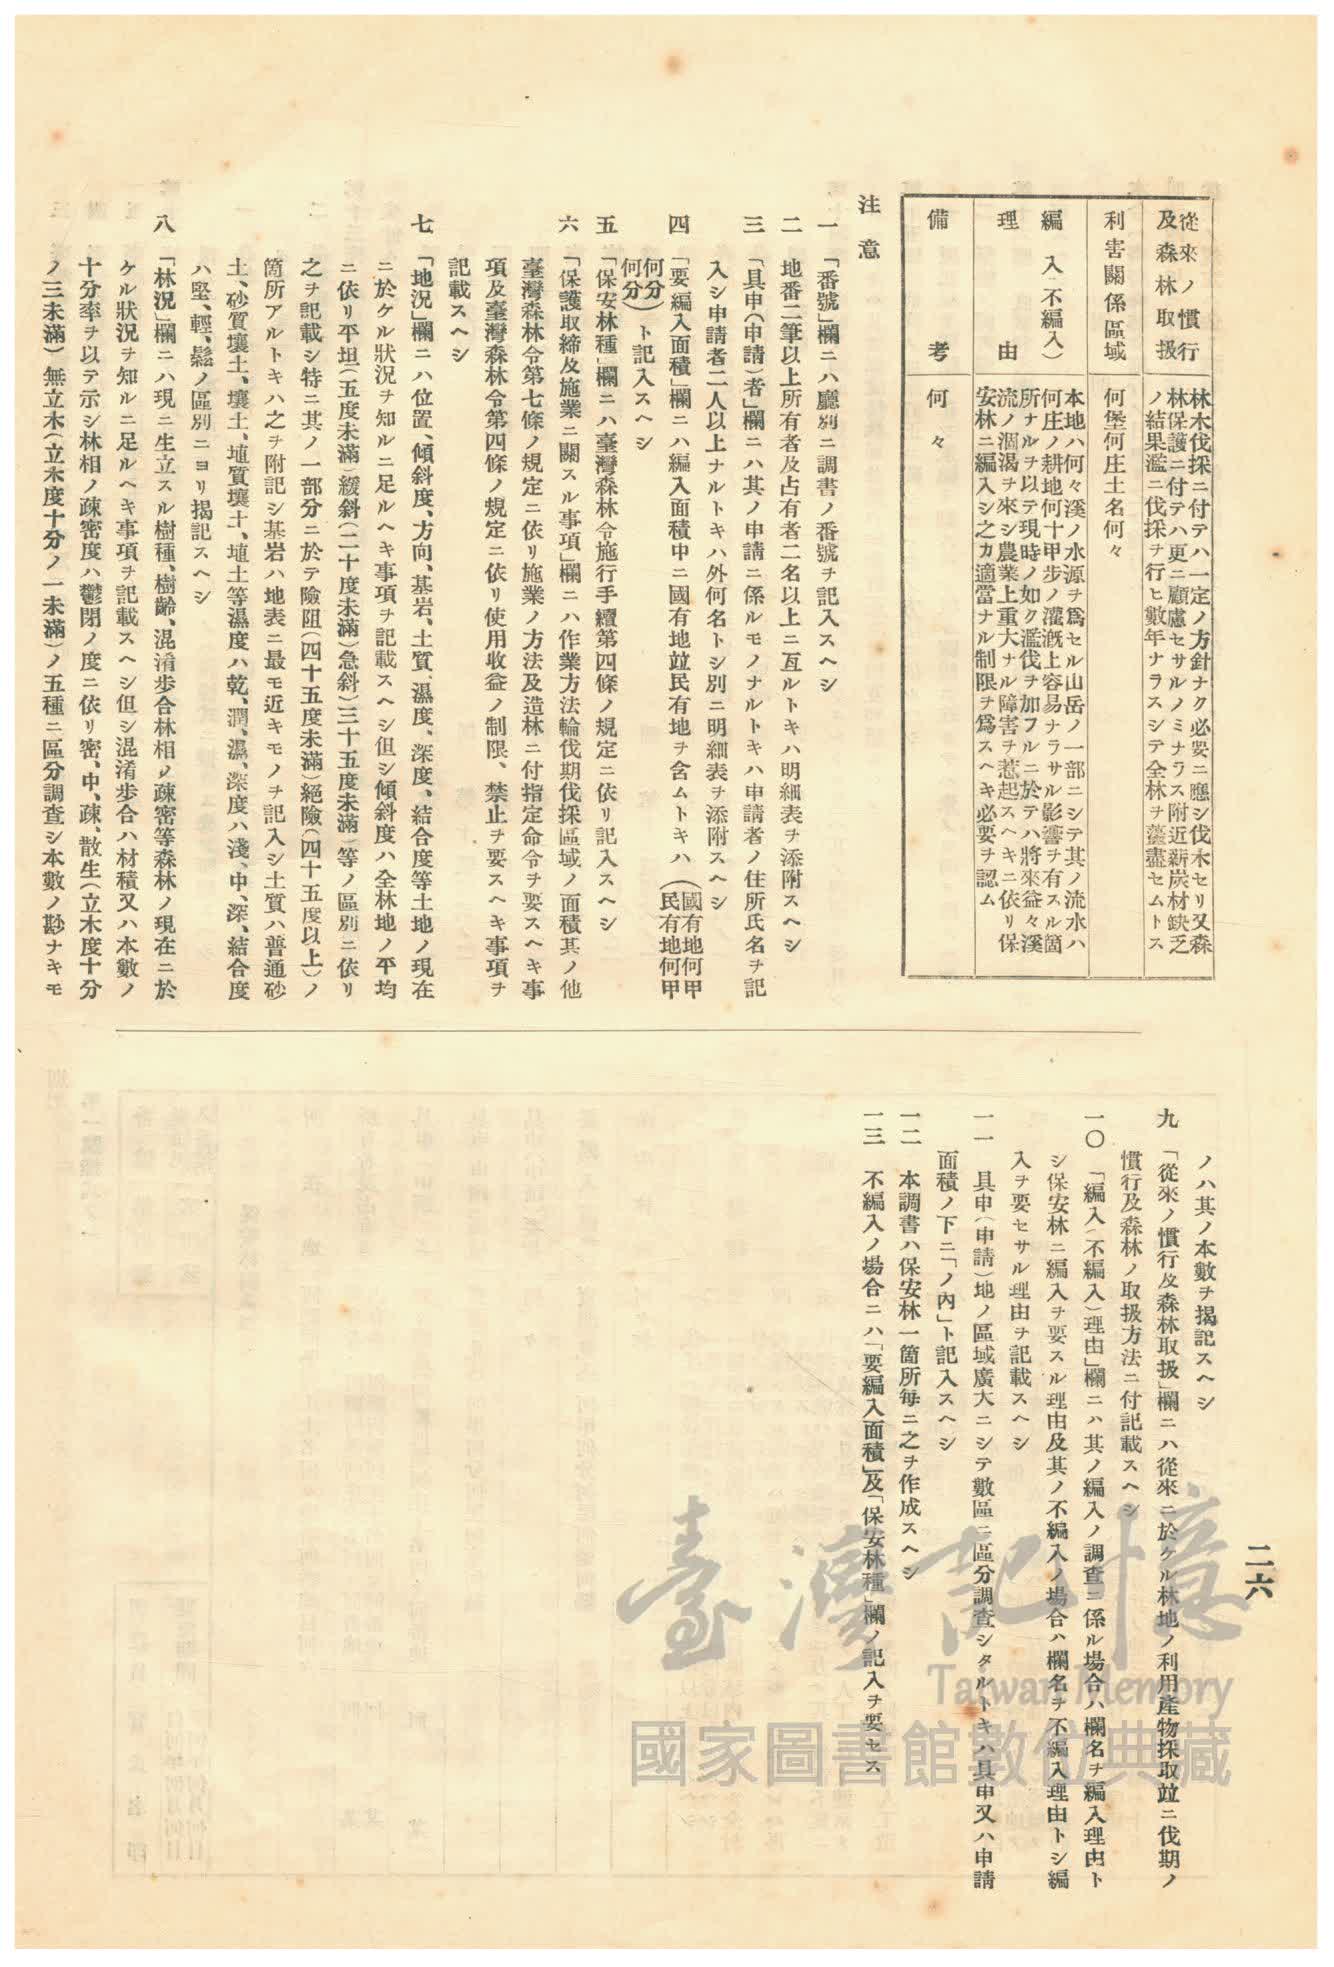 從來ノ慣行
及森林取扱
林木伐採ニ付テハ一定ノ方針ナク必要ニ應シ伐木セリ又森
林保護ニ付テハ更ニ顧慮セサルノミナラス附近薪炭材缺乏
ノ結果濫ニ伐採ヲ行ヒ數年ナラスシテ全林ヲ蕩盡セムトス
利害關係區域
何堡何庄土名何々
編入(不編入)
理由
本地ハ何々溪ノ水源ヲ爲セル山岳ノ一部ニシテ其ノ流水ハ
何庄ノ耕地何十甲步ノ灌漑上容易ナラサル影響ヲ有スル箇
所ナルヲ以テ現時ノ如ク濫伐ヲ加フルニ於テハ將來益々溪
流ノ涸渴ヲ來シ農業上重大ナル障害ヲ惹起スヘキニ依リ保
安林ニ編入シ之カ適當ナル制限ヲ爲スヘキ必要ヲ認ム
備考
何々
注意
一 「番號」欄ニハ廳別ニ調書ノ番號ヲ記入スヘシ
二 地番二筆以上所有者及占有者二名以上ニ亙ルトキハ明細表ヲ添附スヘシ
三 「具申(申請)者」欄ニハ其ノ申請ニ係ルモノナルトキハ申請者ノ住所氏名ヲ記
入シ申請者二人以上ナルトキハ外何名トシ別ニ明細表ヲ添附スヘシ
四 「要編入面積」欄ニハ編入面積中ニ國有地竝民有地ヲ含ムトキハ(國有地何甲
民有地何甲
何分
何分)ト記入スヘシ
五 「保安林種」欄ニハ臺灣森林令施行手續第四條ノ規定ニ依リ記入スヘシ
六 「保護取締及施業ニ關スル事項」欄ニハ作業方法輪伐期伐採區域ノ面積其ノ他
臺灣森林令第七條ノ規定ニ依リ施業ノ方法及造林ニ付指定命令ヲ要スヘキ事
項及臺灣森林令第四條ノ規定ニ依リ使用收益ノ制限、禁止ヲ要スヘキ事項ヲ
記載スヘシ
七 「地況」欄ニハ位置、傾斜度、方向、基岩、土質、濕度、深度、結合度等土地ノ現在
ニ於ケル狀況ヲ知ルニ足ルヘキ事項ヲ記載スヘシ但シ傾斜度ハ全林地ノ平均
ニ依リ平坦(五度未滿)緩斜(二十度未滿)急斜(三十五度未滿)等ノ區別ニ依リ
之ヲ記載シ特ニ其ノ一部分ニ於テ險阻(四十五度未滿)絕險(四十五度以上)ノ
箇所アルトキハ之ヲ附記シ基岩ハ地表ニ最モ近キモノヲ記入シ土質ハ普通砂
土、砂質壤土、壤土、埴質壤土、埴土等濕度ハ乾、潤、濕、深度ハ淺、中、深、結合度
ハ堅、輕、鬆ノ區別ニヨリ揭記スヘシ
八 「林況」欄ニハ現ニ生立スル樹種、樹齡、混淆步合林相ノ疎密等森林ノ現在ニ於
ケル狀況ヲ知ルニ足ルヘキ事項ヲ記載スヘシ但シ混淆步合ハ材積又ハ本數ノ
十分率ヲ以テ示シ林相ノ疎密度ハ鬱閉ノ度ニ依リ密、中、疎、散生(立木度十分
ノ三未滿)無立木(立木度十分ノ一未滿)ノ五種ニ區分調查シ本數ノ尠ナキモ
ノハ其ノ本數ヲ揭記スヘシ
九 「從來ノ慣行及森林取扱」欄ニハ從來ニ於ケル林地ノ利用產物採取竝ニ伐期ノ
慣行及森林ノ取扱方法ニ付記載スヘシ
一〇 「編入(不編入)理由」欄ニハ其ノ編入ノ調查ニ係ル場合ハ欄名ヲ編入理由ト
シ保安林ニ編入ヲ要スル理由及其ノ不編入ノ場合ハ欄名ヲ不編入理由トシ編
入ヲ要セサル理由ヲ記載スヘシ
一一 具申(申請)地ノ區域廣大ニシテ數區ニ區分調查シタルトキハ具申又ハ申請
面積ノ下ニ「ノ內」ト記入スヘシ
一二 本調書ハ保安林一箇所每ニ之ヲ作成スヘシ
一三 不編入ノ場合ニハ「要編入面積」及「保安林種」欄ノ記入ヲ要セス
二六
臺灣記憶
Taiwan Memory
國家圖書館數位典藏